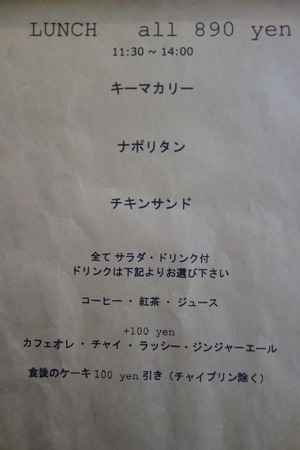 LUNCH all 890 yen
11:30 ~ 14:00
キーマカリー
ナポリタン
チキンサンド
全て サラダ・ドリンク付
ドリンクは下記よりお選び下さい
コーヒー ・ 紅茶 ・ ジュース
+100 yen
カフェオレ ・ チャイ ・ ラッシー・ジンジャーエール
食後のケーキ 100 yen 引き（チャイプリン除く）